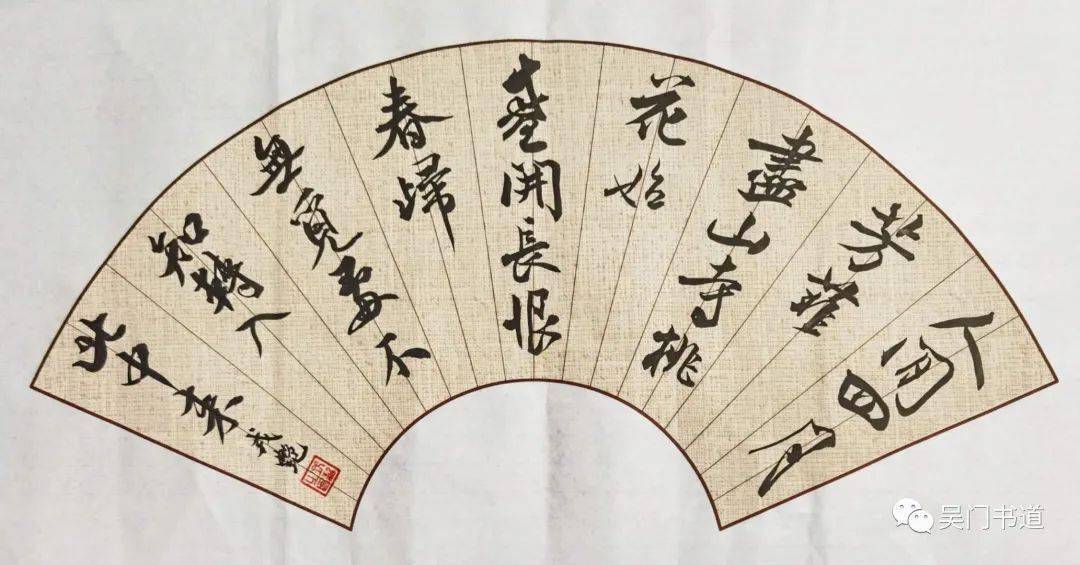 人間四月
芳菲
盡山寺桃
花始
盛開長恨
春歸
無覓處不
知轉入
此中來
吴门书道